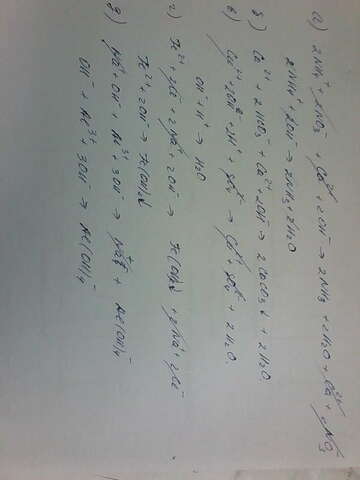 а) 2NH₄⁺ + 2NO₃⁻ + Ca²⁺ + 2OH⁻ → 2NH₃ + 2H₂O + Ca²⁺ + 2NO₃⁻
2NH₄⁺ + 2OH⁻ → 2NH₃ + 2H₂O
б) Ca²⁺ + 2HCO₃⁻ + Ca²⁺ + 2OH⁻ → 2CaCO₃↓ + 2H₂O.
в) 2OH⁻ + 2H⁺ + → + 2H₂O.
OH⁻ + H⁺ → H₂O
г) Fe²⁺ + 2Cl⁻ + 2Na⁺ + 2OH⁻ → Fe(OH)₂↓ + 2Na⁺ + 2Cl⁻
Fe²⁺ + 2OH⁻ → Fe(OH)₂↓
д) Na⁺ + OH⁻ + Al³⁺ + 3OH⁻ → Na⁺ + Al(OH)₄⁻
OH⁻ + Al³⁺ + 3OH⁻ → Al(OH)₄⁻